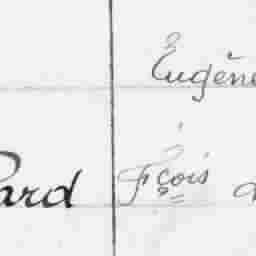 Eugène
ard Fçois